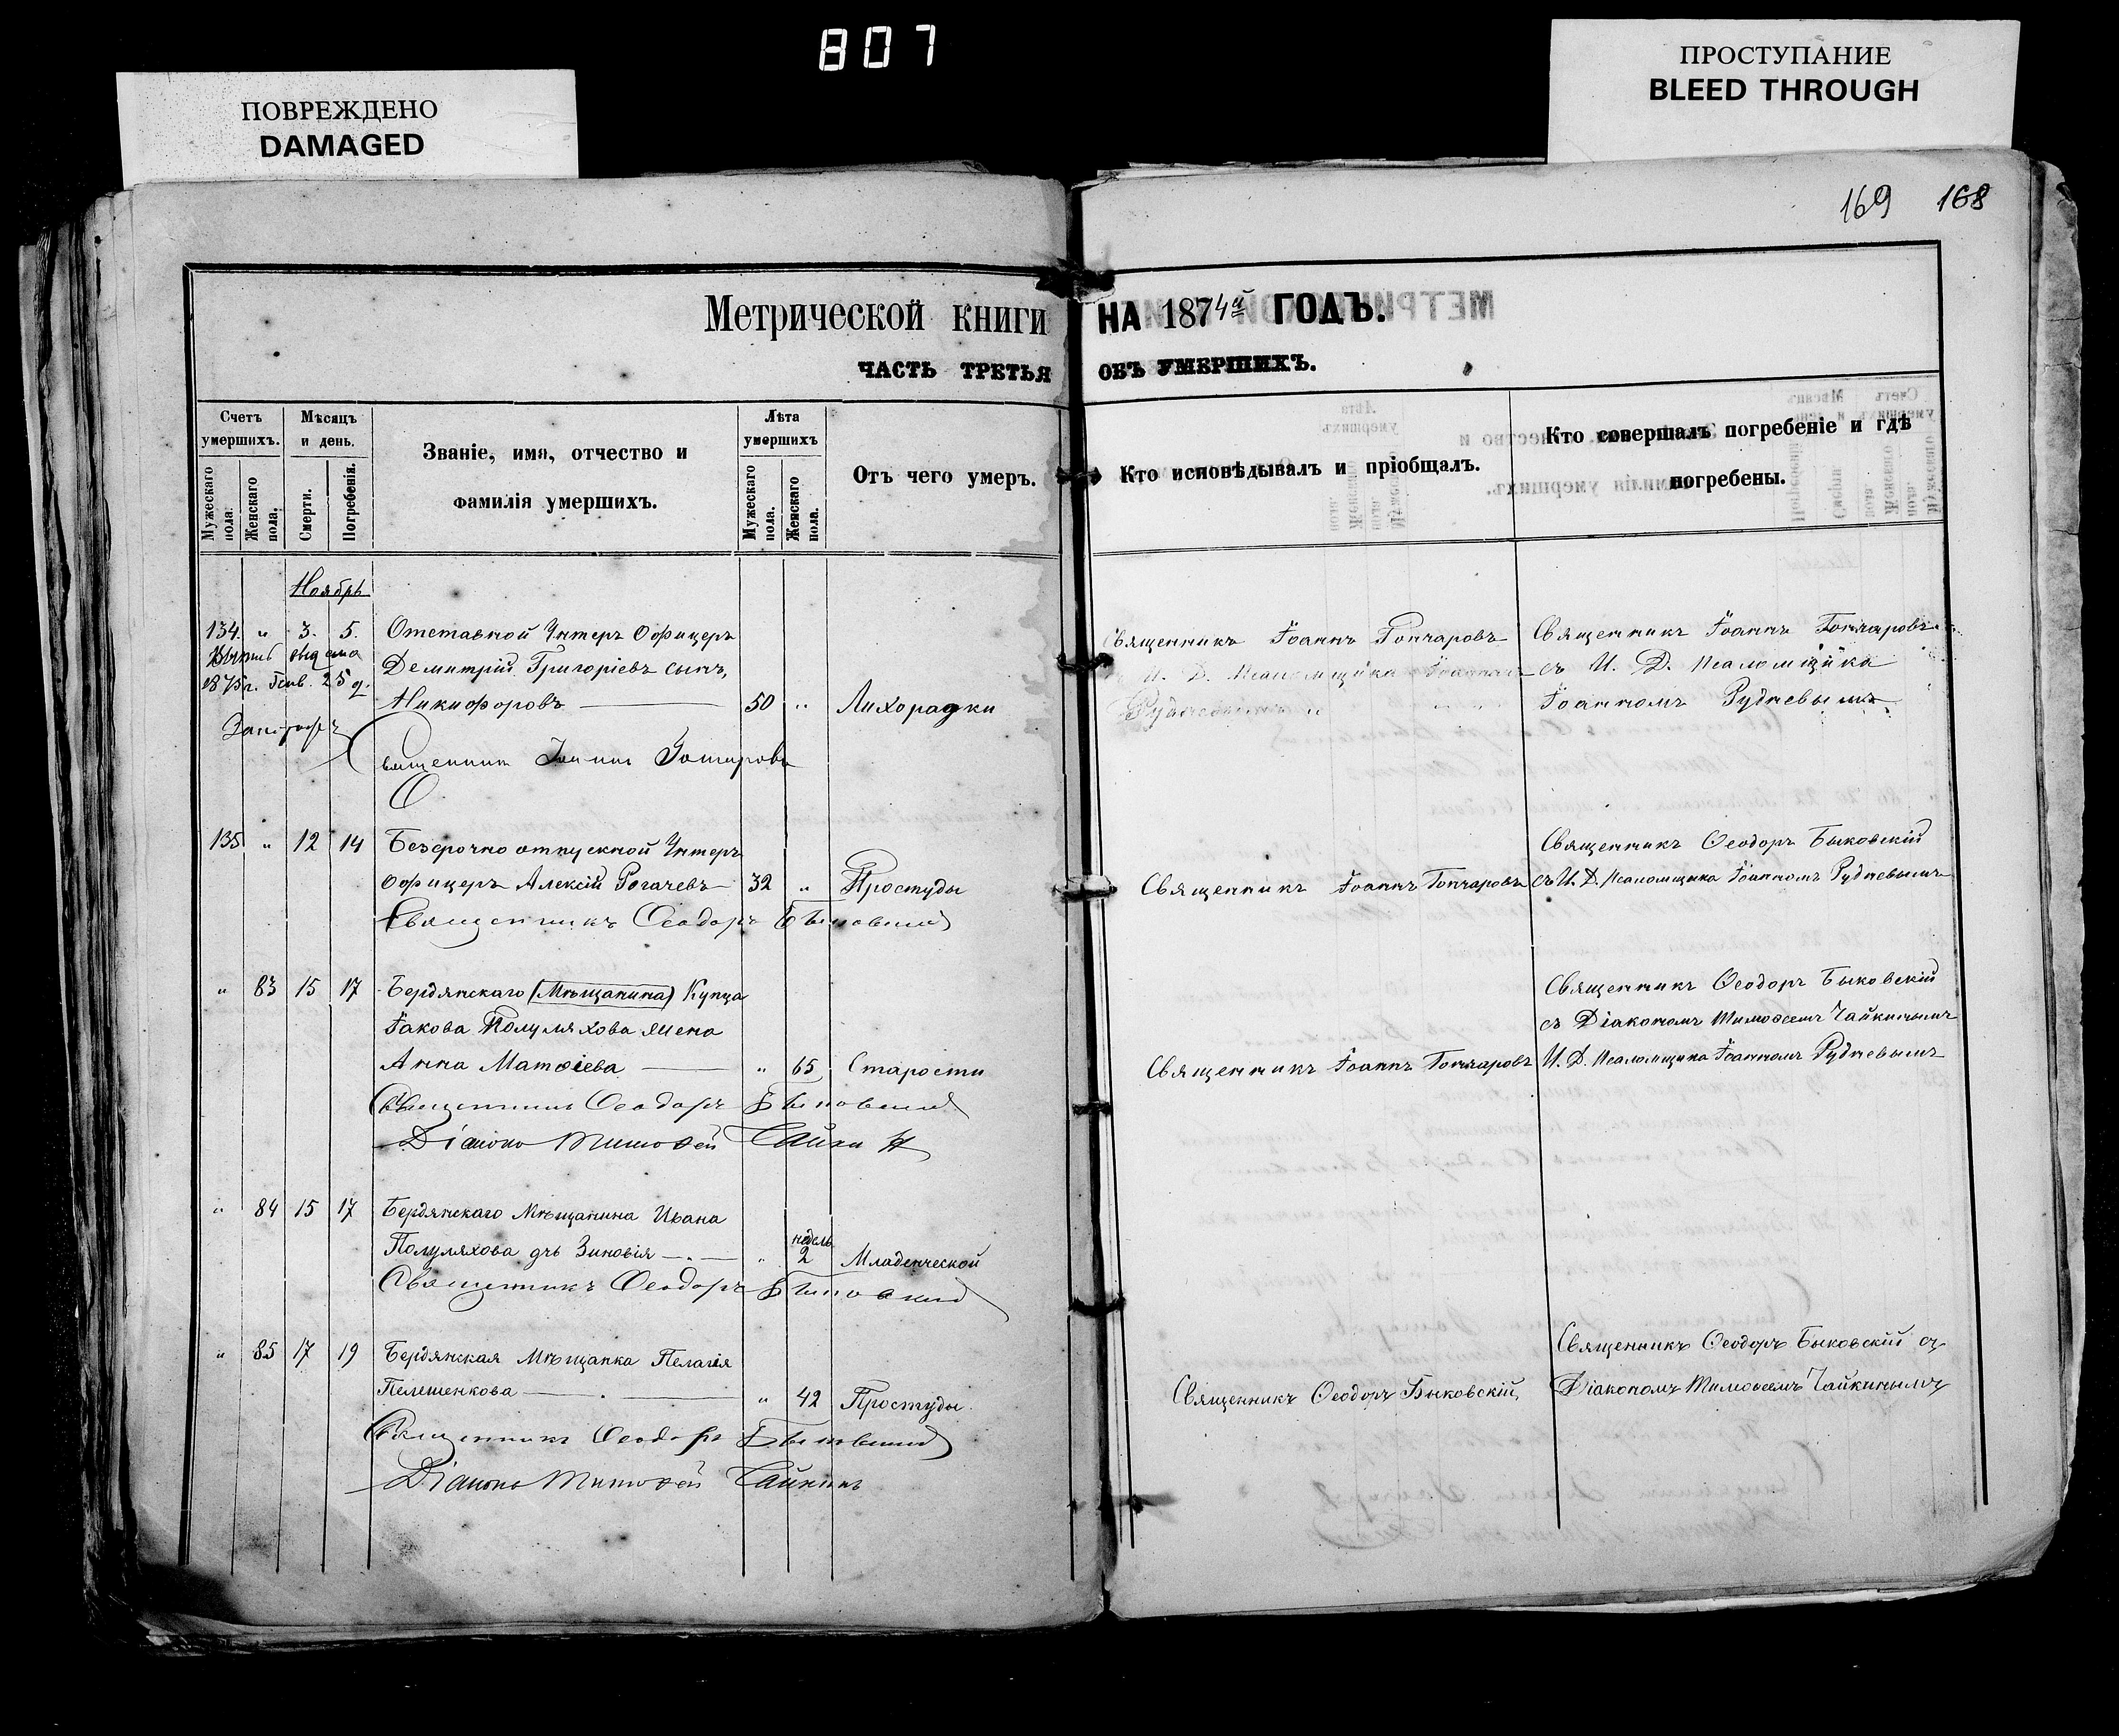 807
ПОВРЕЖДЕНО
DAMAGED
ПРОСТУПАНИЕ
BLEED THROUGH
169 168
Метрической книги на 1874й годъ.
часть третья объ умершихъ.
Счетъ умершихъ.
Мужескаго пола.
Женскаго пола.
Мѣсяцъ и день.
Смерти.
Погребенія.
Званіе, имя, отчество и
фамилія умершихъ.
Лѣта умершихъ
Мужескаго пола.
Женскаго пола.
Отъ чего умеръ.
Кто исповѣдывалъ и пріобщалъ.
Кто совершалъ погребеніе и гдѣ
погребены.
Ноябрь
134. " 3. 5. Отставной Унтеръ Офицеръ
Демитрій Григоріевъ сынъ,
Никифоровъ 50 " Лихорадки
1875 г. Генв. 25 д.
Священникъ Іоаннъ Гончаровъ
Священникъ Іоаннъ Гончаровъ
И. Д. Псаломщика
Священникъ Іоаннъ Гончаровъ
съ И. Д. Псаломщика
Іоанномъ Рудневымъ
135 " 12 14 Безсрочно отпускной Унтеръ
Офицеръ Алексій Рогачевъ 32 " Простуды
Священникъ Ѳеодоръ Быковскій
Священникъ Іоаннъ Гончаровъ
Священникъ Ѳеодоръ Быковскій
съ И. Д. Псаломщика Іоанномъ Рудневымъ
" 83 15 17 Бердянскаго (Мѣщанина) Купца
Іакова Полуляхова жена
Анна Матѳіева " 65 Старости
Священникъ Ѳеодоръ Быковскій
Діаконъ Тимоѳей Чайкинъ
Священникъ Іоаннъ Гончаровъ
Священникъ Ѳеодоръ Быковскій
съ Діакономъ Тимоѳеемъ Чайкинымъ
И. Д. Псаломщика Іоанномъ Рудневымъ
" 84 15 17 Бердянскаго Мѣщанина Ивана
Полуляхова дчь Зиновія " недѣль 2 Младенческой
Священникъ Ѳеодоръ Быковскій
" 85 17 19 Бердянская Мѣщанка Пелагія
Пелешенкова " 42 Простуды
Священникъ Ѳеодоръ Быковскій
Діаконъ Тимоѳей Чайкинъ
Священникъ Ѳеодоръ Быковскій,
Священникъ Ѳеодоръ Быковскій съ
Діакономъ Тимоѳеемъ Чайкинымъ